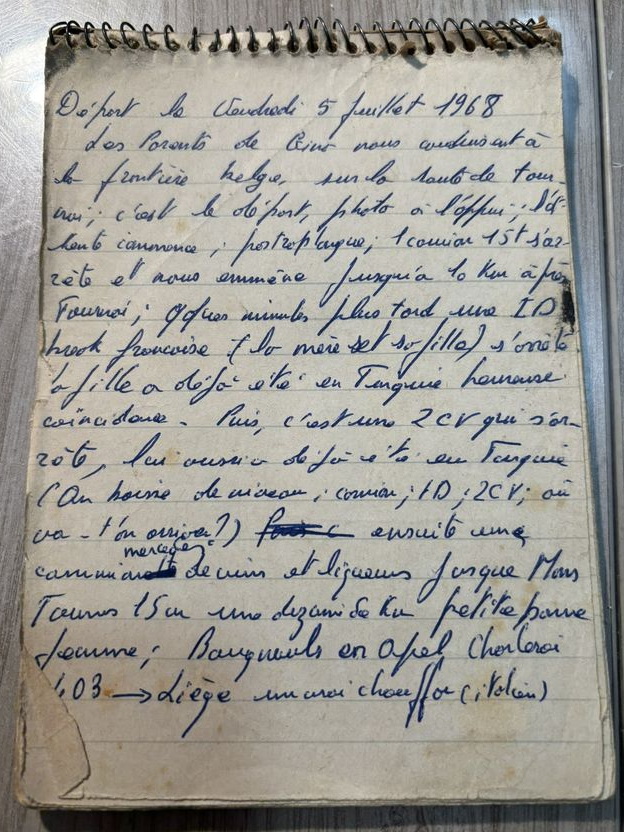 Départ le Vendredi 5 Juillet 1968
Les Parents de nous conduisent à
la frontière belge, sur la route de Tour-
nai; c'est le départ, photo à l'appui; l'at-
tente commence; 1 camion 15t s'ar-
rête et nous emmène jusqu'à 10 Km après
Tournai; qques minutes plus tard une ID
break française (la mère et sa fille) s'arrête
la fille a déjà été en Turquie heureuse
coïncidence. Puis, c'est une 2CV qui s'ar-
rête, lui aussi a déjà été en Turquie
(On baisse de niveau; camion; ID; 2CV; où
va-t'on arriver?) ensuite une
de vins et liqueurs jusque Mons
15 ou une dizaine de Km petite panne
; en Opel Charleroi
403 → Liège un vrai chauffor (italien)